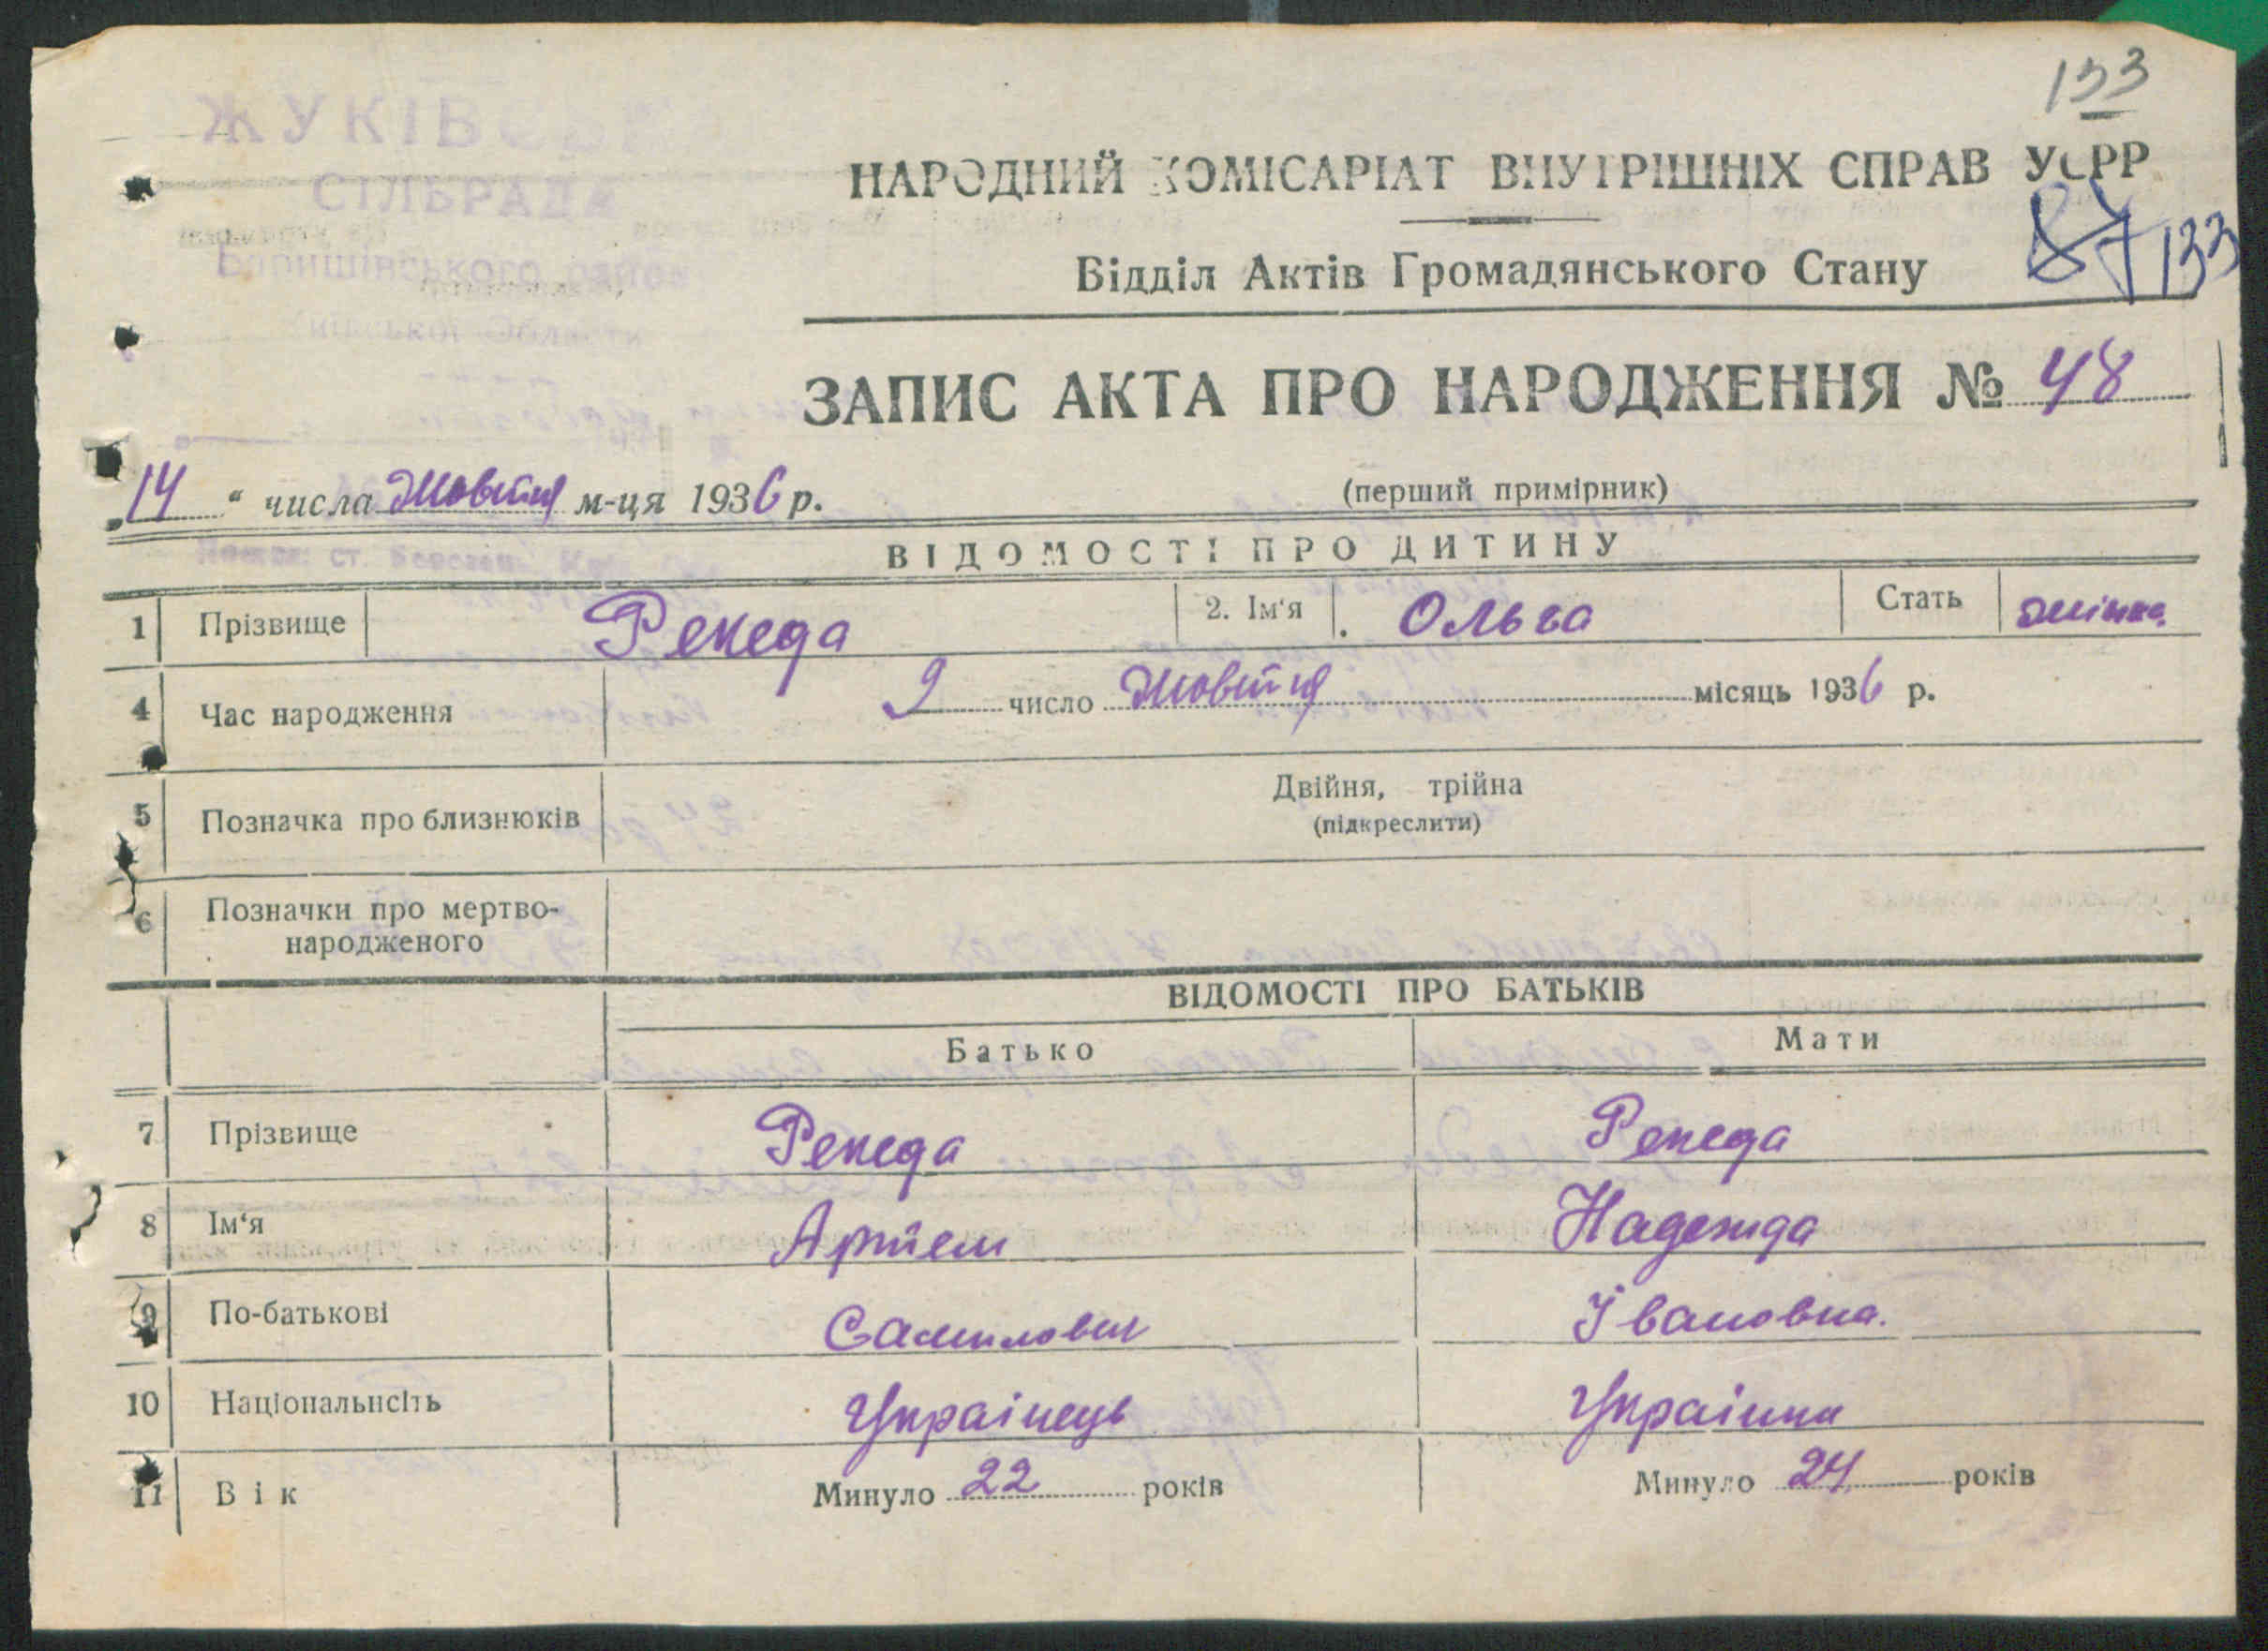 133
ЖУКІВСЬК
СІЛЬРАДА
Баришівського район
Київської Области
НАРОДНИЙ КОМІСАРІАТ ВНУТРІШНІХ СПРАВ УСРР
87 133
Відділ Актів Громадянського Стану
ЗАПИС АКТА ПРО НАРОДЖЕННЯ № 48
„14" числа Жовтня м-ця 1936 р.
(перший примірник)
ВІДОМОСТІ ПРО ДИТИНУ
1 Прізвище Рекеда 2. Ім'я Ольга Стать жінка.
4 Час народження 9 число Жовтня місяць 1936 р.
5 Позначка про близнюків Двійня, трійна
(підкреслити)
6 Позначки про мертво-
народженого
ВІДОМОСТІ ПРО БАТЬКІВ
Батько Мати
7 Прізвище Рекеда Рекеда
8 Ім'я Артем Надежда
9 По-батькові Самилович Івановна.
10 Національнсіть Украінець Украінка
11 Вік Минуло 22 років Минуло 24 років